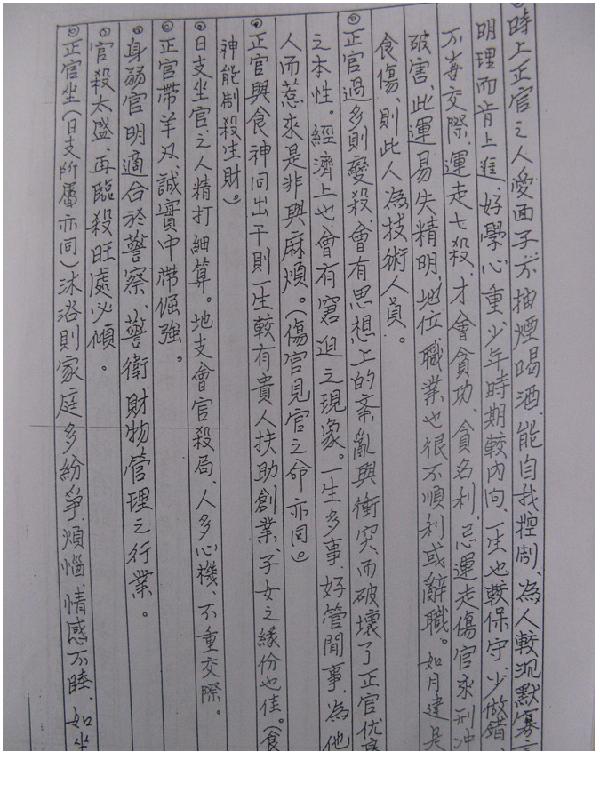 時上正官之人愛面子亦抽煙喝酒、能自我控制、為人較沉默寡言
明理而肯上進、好學心重少年時期較內向、一生也較保守、少做錯、
不每交際、運走七殺、才會貪功、貪名利、忌運走傷官來刑沖
破害、此運易失精明、地位職業也很不順利或辭職。如月建是
食傷、則此人為技術人員。
正官過多則變殺會有思想上的紊亂與衝突、而破壞了正官优
之本性。經濟上也會有窘迫之現象。一生多事、好管閒事、為他
人而惹來是非與麻煩。(傷官見官之命亦同)
正官與食神同出干則一生較有貴人扶助創業、子女之緣份也佳。(食
神能制殺生財)
日支坐官之人精打細算。地支會官殺局、人多心機、不重交際。
正官帶羊刃、誠實中帶倔強。
身弱官明適合於警察、警衛財物管理之行業。
官殺太盛、再臨殺旺處必傾。
正官坐(日支所屬亦同)沐浴則家庭多紛爭、煩惱、情感不睦、如坐